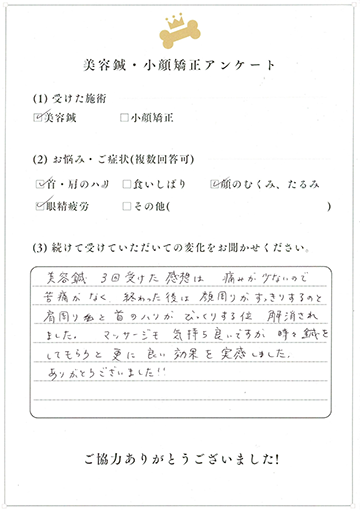 美容鍼・小顔矯正アンケート
(1) 受けた施術
☑美容鍼 □小顔矯正
(2) お悩み・ご症状(複数回答可)
☑首・肩のハリ □食いしばり ☑顔のむくみ、たるみ
☑眼精疲労 □その他( )
(3) 続けて受けていただいての変化をお聞かせください。
美容鍼 3回受けた感想は 痛みが少ないので
苦痛がなく 終わった後は 顔周りがすっきりするのと
肩周り と 首のハリが びっくりする位 解消され
ました。 マッサージも 気持ち良いですが 時々鍼を
してもらうと 更に 良い 効果を 実感しました.
ありがとうございました!!
ご協力ありがとうございました!